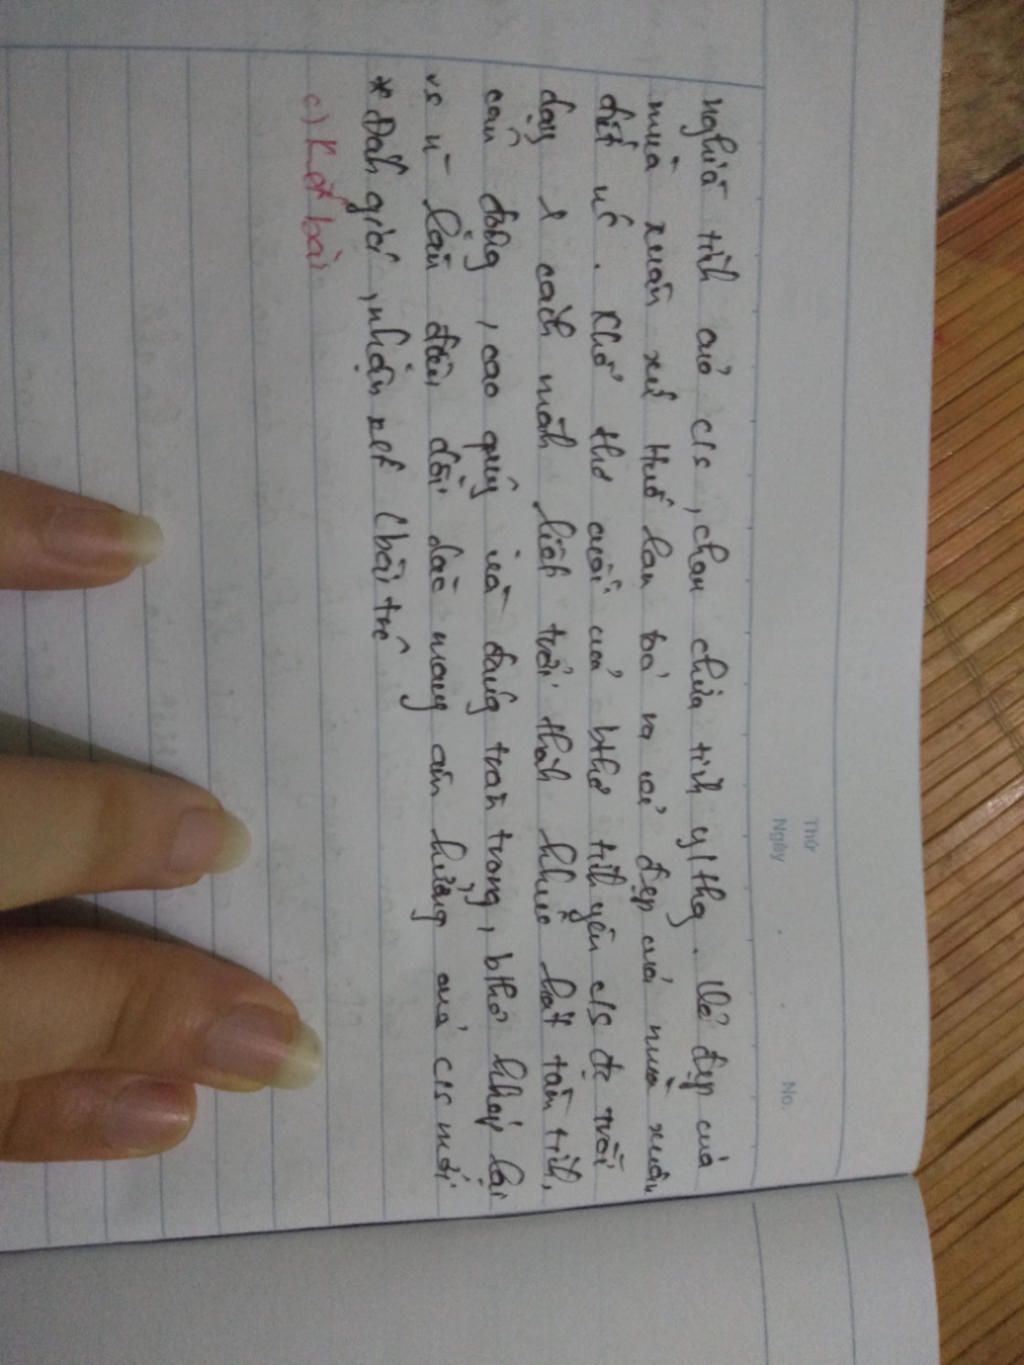 Thứ
Ngày No.
nghĩa tình của c/s, chan chứa tình y/thg. Vẻ đẹp của
mùa xuân xứ Huế lan toả ra vẻ đẹp của mùa xuân
đất nc. Khổ thơ cuối của bthơ tình yêu c/s đc trỗi
dậy 1 cách mãnh liệt trởi thành khúc hát tâm tình,
cảm động, cao quý và đáng trân trọng, bthơ khép lại
vs n~ làn điệu dồi dào mang âm hưởng của c/s mới
* Đánh giá, nhận xét (bài thơ
c) Kết bài